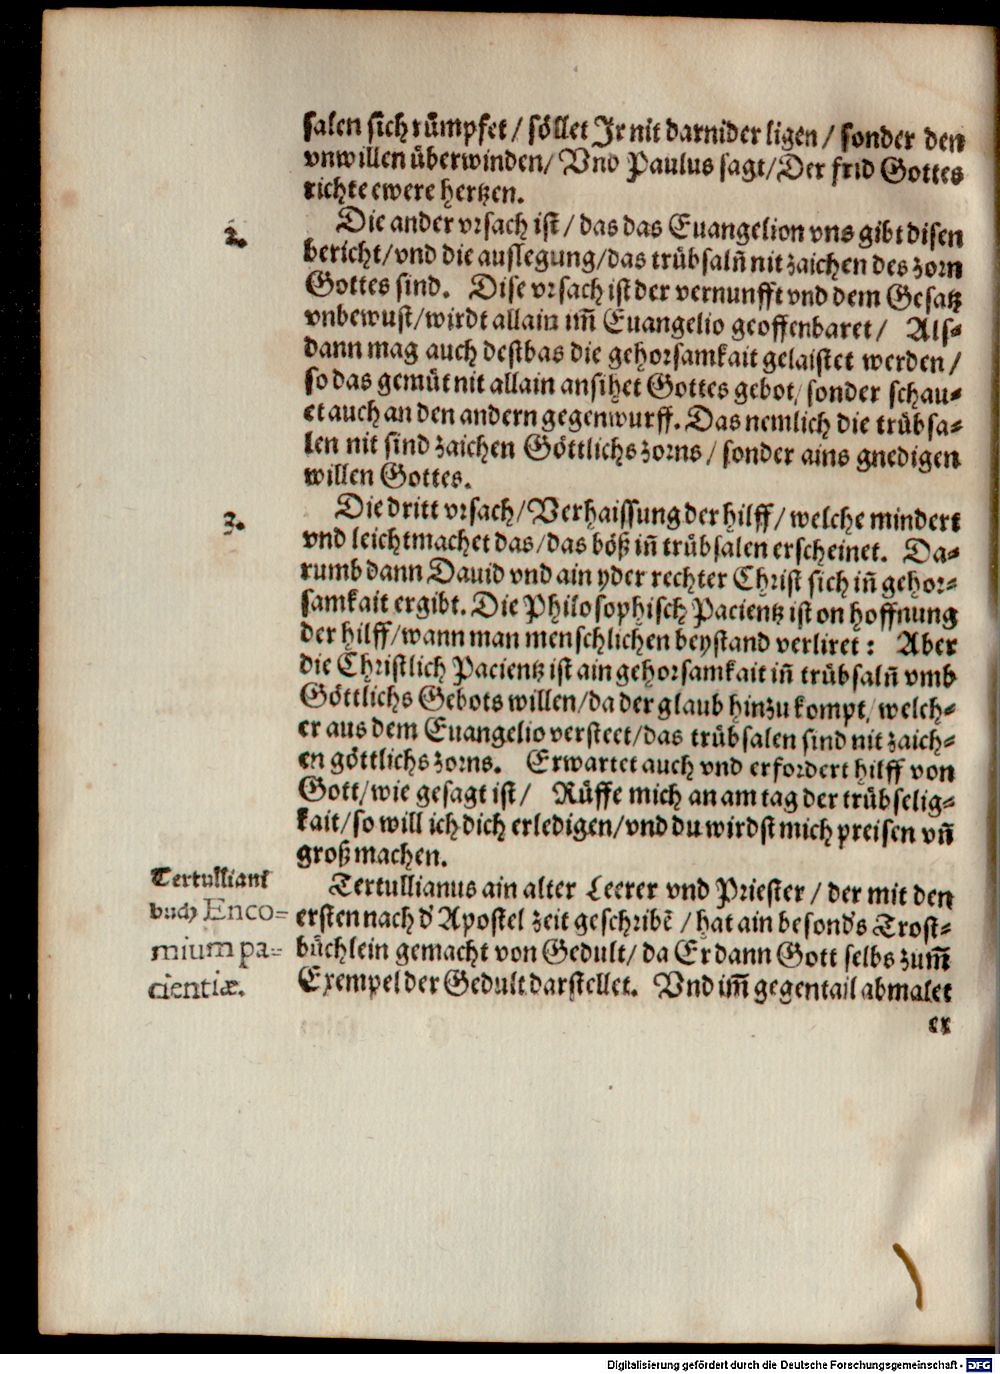 salen sich rümpfet / söllet Jr nit darnider ligen / sonder den
vnwillen überwinden / Vnd Paulus sagt / Der frid Gottes
richte ewere hertzen.
2.
Die ander vrsach ist / das das Euangelion vns gibt disen
bericht / vnd die ausslegung / das trübsaln̄ nit zaichen des zorn
Gottes sind. Dise vrsach ist der vernunfft vnd dem Gesatz
vnbewust / wirdt allain im̄ Euangelio geoffenbaret / Als-
dann mag auch destbas die gehorsamkait gelaistet werden /
so das gemüt nit allain ansihet Gottes gebot / sonder schau-
et auch an den andern gegenwurff. Das nemlich die trübsa-
len nit sind zaichen Göttlichs zorns / sonder ains gnedigen
willen Gottes.
3.
Die dritt vrsach / Verhaissung der hilff / welche mindert
vnd leichtmachet das / das böß in̄ trübsalen erscheinet. Da-
rumb dann Dauid vnd ain yder rechter Christ sich in̄ gehor-
samkait ergibt. Die Philosophisch Pacientz ist on hoffnung
der hilff / wann man menschlichen beystand verliret : Aber
die Christlich Pacientz ist ain gehorsamkait in̄ trübsaln̄ vmb
Göttlichs Gebots willen / da der glaub hinzu kompt / welch-
er aus dem Euangelio versteet / das trübsalen sind nit zaich-
en göttlichs zorns. Erwartet auch vnd erfordert hilff von
Gott / wie gesagt ist / Rüffe mich an am tag der trübselig-
kait / so will ich dich erledigen / vnd du wirdst mich preisen vn̄
groß machen.
Tertulliani
buch Enco-
mium pa-
cientiæ.
Tertullianus ain alter Leerer vnd Priester / der mit den
ersten nach d' Apostel zeit geschribē / hat ain besond's Trost-
büchlein gemacht von Gedult / da Er dann Gott selbs zum̄
Exempel der Gedult darstellet. Vnd im̄ gegentail abmalet
er
Digitalisierung gefördert durch die Deutsche Forschungsgemeinschaft - DFG